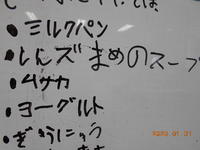 では
・ミルクパン
・レンズまめのスープ
・ムサカ
・ヨーグルト
・ぎゅうにゅう
2020 01 31